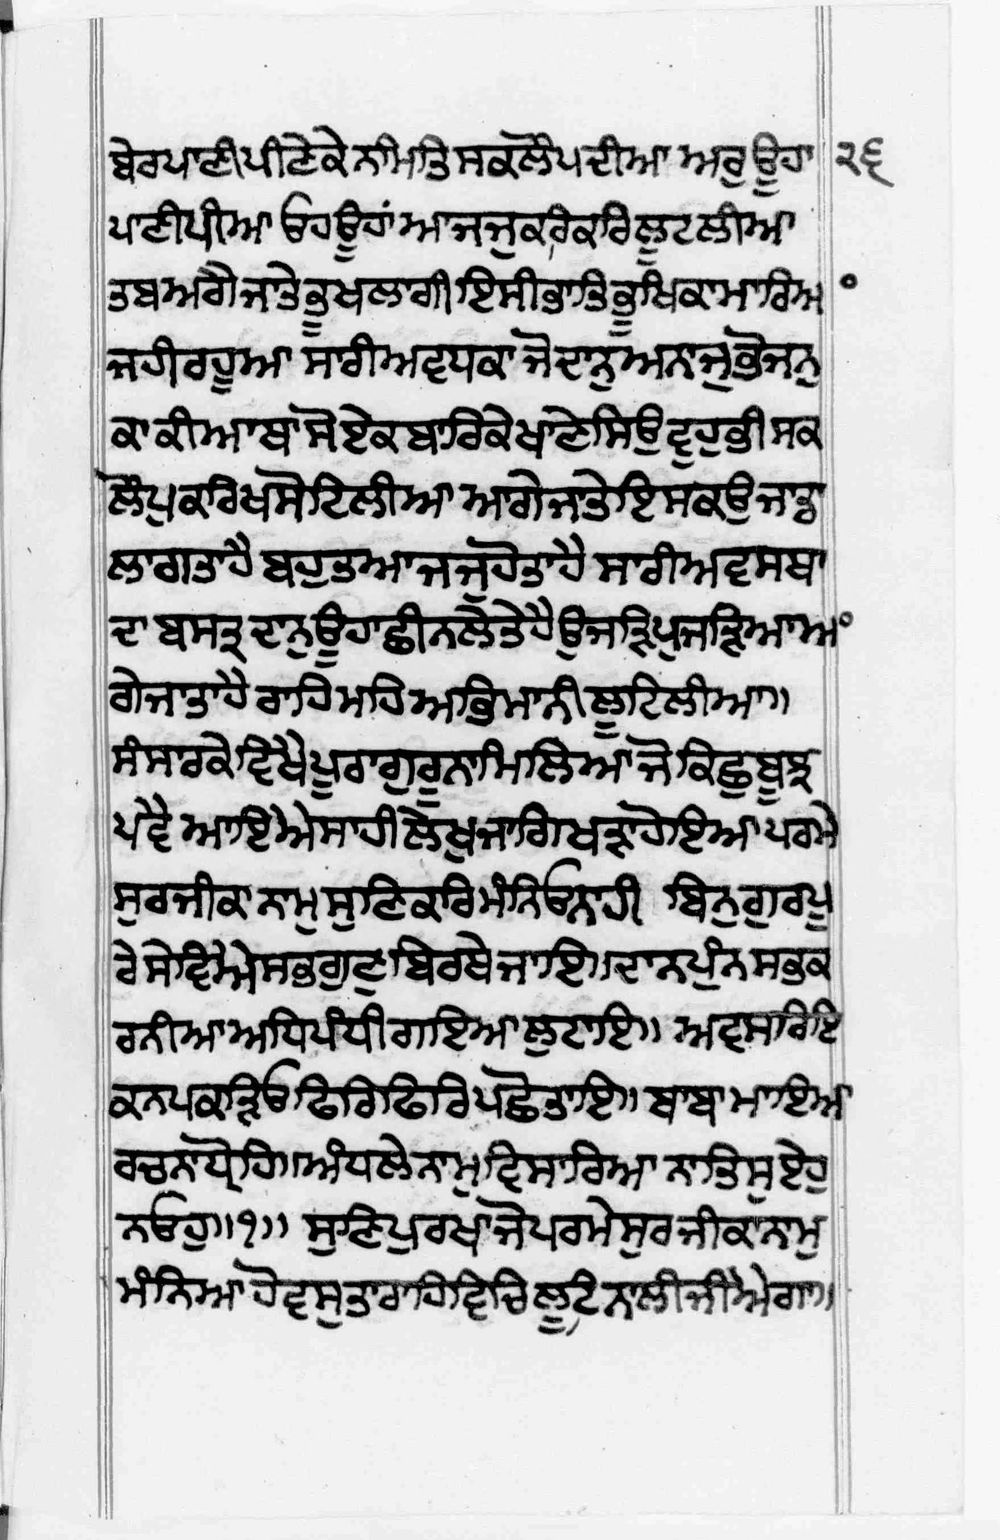 ਬੇਰਪਾਣੀਪੀਣੇਕੇਨਿਮਤਿਸਕਲੌਪਦੀਆ ਅਰੁ ਊਹਾ ੨੬
ਪਾਣੀਪੀਆ ਓਹਊਹਾਂ ਆਜਜੁਕਰਿਕਰਿਲੂਟਲੀਆ
ਤਬਅਗੈਜਾਤੇਭੂਖਲਾਗੀਇਸੀਭਾਤਿਭੂਖਿਕਾਮਾਰਿਅ
ਜਹੀਰਹੂਆ ਸਾਰੀਅਵਧਕਾ ਜੋਦਾਨੁਅਨਾਜੁਭੋਜਨੁ
ਕਾਕੀਆਥਾ ਸੋਏਕਬਾਰਿਕੇਖਾਣੇਸਿਉਵਹੁਭੀਸਕ
ਲੌਪੁਕਰਿਖਸੋਟਿਲੀਆ ਆਗੇਜਾਤੇਇਸਕਉਜਾਡਾ
ਲਾਗਤਾਹੈ ਬਹੁਤਆਜਜੁਹੋਤਾਹੈ ਸਾਰੀਅਵਸਥਾ
ਦਾ ਬਸਤ੍ਰ ਦਾਨੁਊਹਾਛੀਨਲੇਤੇਹੈਉਜੜਿਪੁਜੜਿਆਅ
ਗੇਜਾਤਾਹੈ ਰਾਹਿਮਹਿਅਭਿਮਾਨੀਲੂਟਿਲੀਆ॥
ਸੰਸਾਰਕੇਵਿਖੈਪੂਰਾਗੁਰੂਨਾਮਿਲਿਆ ਜੋਕਿਛੁਬੂਝ
ਪਵੈ ਆਇਐਸਾਹੀਲੇਖੁਜਾਗਿਖੜਾਹੋਇਆ ਪਰਮੇ
ਸੁਰਜੀਕਾਨਾਮੁਸੁਣਿਕਰਿਮੰਨਿਓਨਾਹੀ ਬਿਨੁਗੁਰਪੂ
ਰੇਸੇਵਿਐਸਭਗੁਣਬਿਰਥੇਜਾਇ॥ਦਾਨਪੁੰਨਸਭਕ
ਰਨੀਆਅਧਿਪੰਧੀਗਇਆਲੁਟਾਇ॥ ਅਵਸਰਿਇ
ਕਨਪਕੜਿਓਫਿਰਿਫਿਰਿਪਛੋਤਾਇ॥ ਬਾਬਾਮਾਇਆ
ਰਚਨਾਧੋਹਿ॥ਅੰਧਲੇਨਾਮੁਵਿਸਾਰਿਆ ਨਾਤਿਸੁਏਹੁ
ਨਓਹੁ॥੧॥ ਸੁਣਿਪੁਰਖਾਜੋਪਰਮੇਸੁਰਜੀਕਾਨਾਮੁ
ਮੰਨਿਆਹੋਵਸੁਤਾਰਾਹਿਵਿਚਿਲੂਟਿਨਾਲੀਜੀਐਗਾ॥